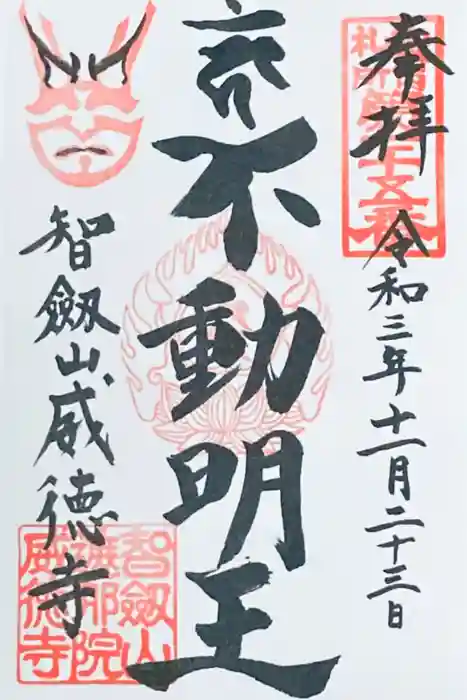 奉拝
令和三年十一月二十三日
不動明王
智劔山威徳寺
智劔山
院
威徳寺